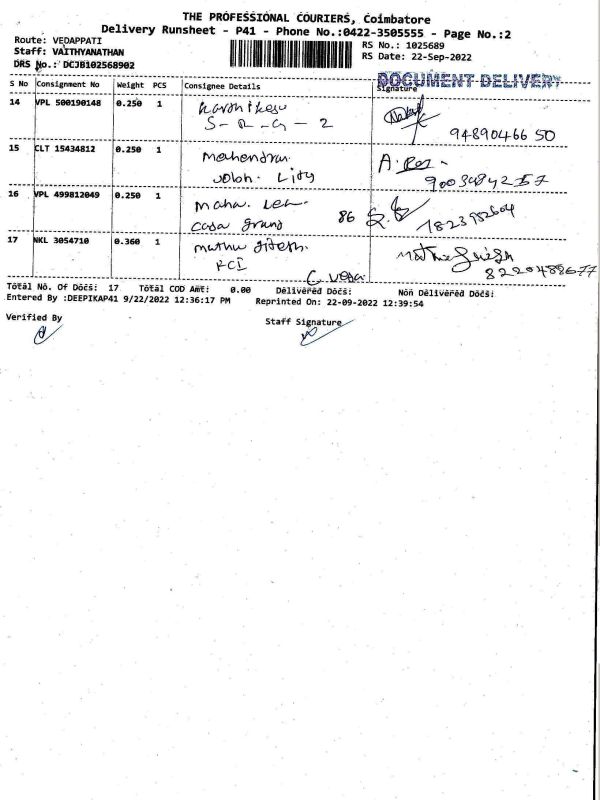 THE PROFESSIONAL COURIERS, Coimbatore
Delivery Runsheet - P41 - Phone No.:0422-3505555 - Page No.:2
Route: VEDAPPATI
Staff: VAITHYANATHAN
DRS No.: DCJB102568902
RS No.: 1025689
RS Date: 22-Sep-2022
DOCUMENT DELIVERY
S No Consignment No Weight PCS Consignee Details Signature
14 VPL 500190148 0.250 1
S-R-G-2
94890466 50
15 CLT 15434812 0.250 1 Mahendran
A.
16 VPL 499812049 0.250 1 Maha
Casa grand 86
17 NKL 3054710 0.360 1 Muthu
8220488677
Total No. Of Docs: 17 Total COD Amt: 0.00 Delivered Docs: Non Delivered Docs:
Entered By :DEEPIKAP41 9/22/2022 12:36:17 PM Reprinted On: 22-09-2022 12:39:54
Verified By
Staff Signature